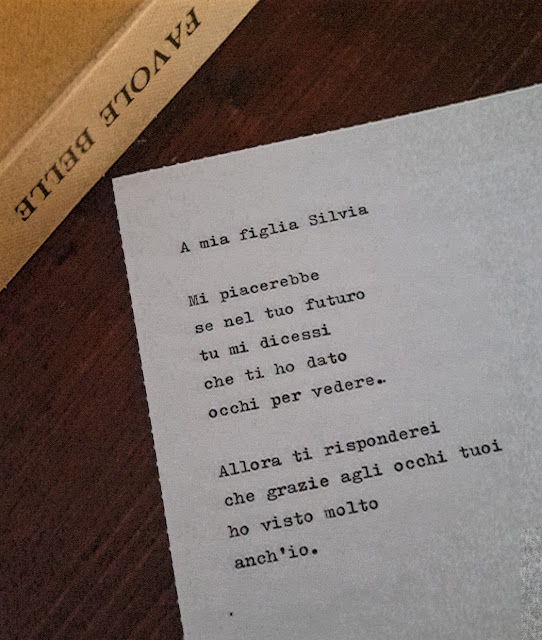 FAVOLE BELLE
A mia figlia Silvia
Mi piacerebbe
se nel tuo futuro
tu mi dicessi
che ti ho dato
occhi per vedere..
Allora ti risponderei
che grazie agli occhi tuoi
ho visto molto
anch'io.
.